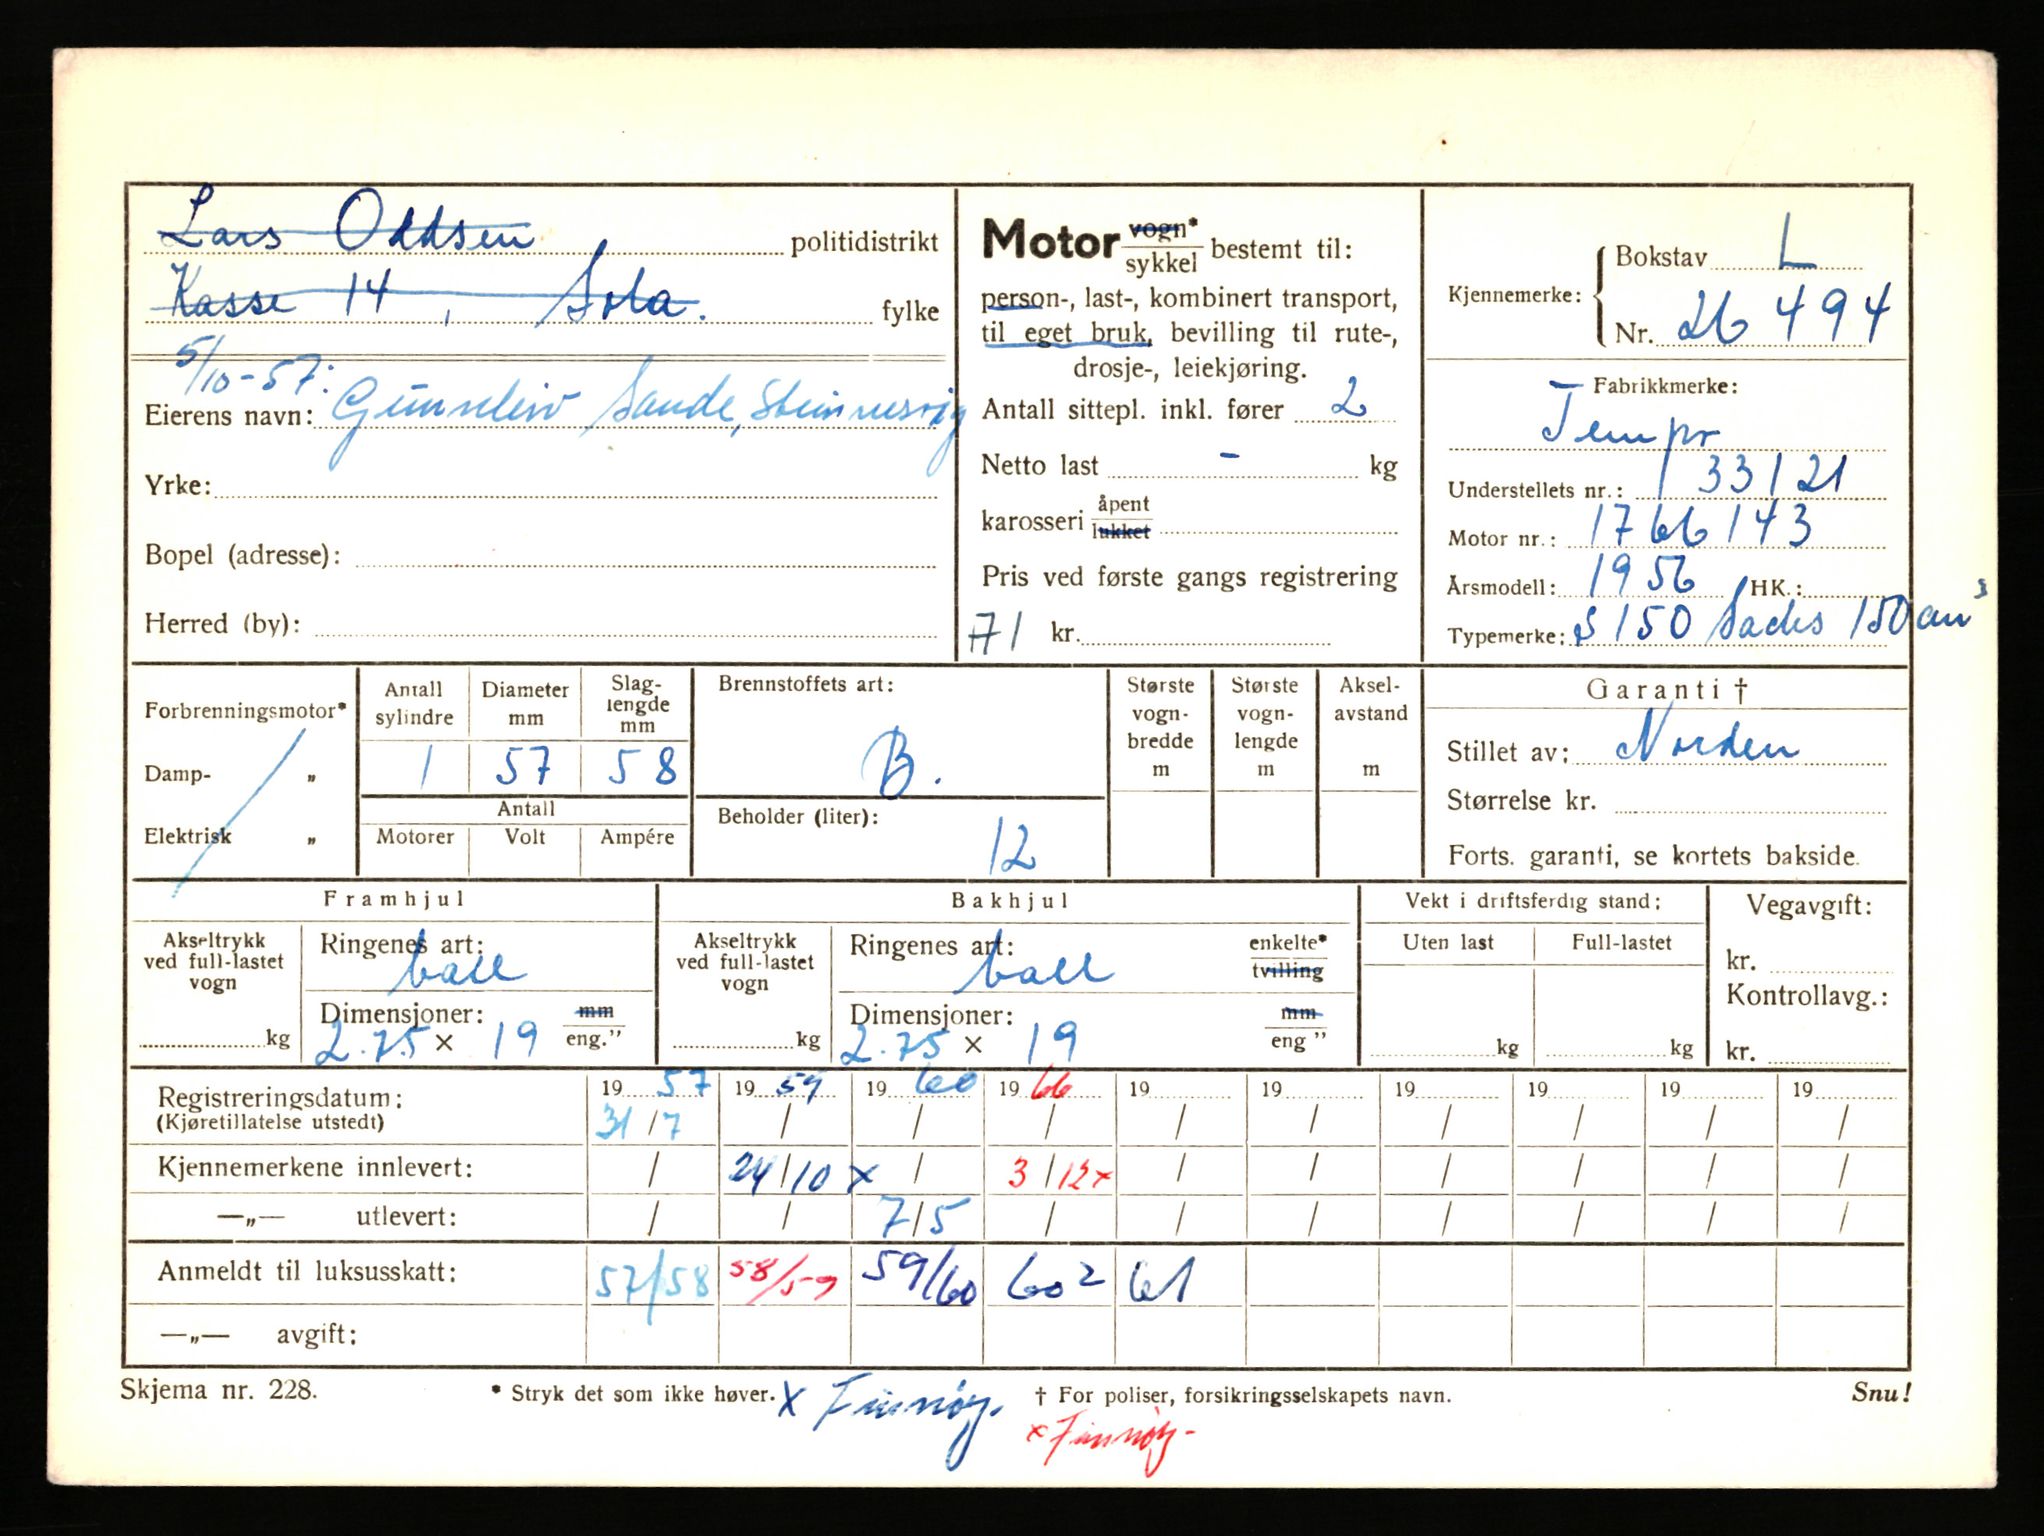 Lars Oddsen politidistrikt
Kasse 14, Sola. fylke
5/10-57:
Eierens navn: Gunnleiv Sande, Steinnesvåg
Yrke:
Bopel (adresse):
Herred (by):
Motor vogn* sykkel bestemt til:
person-, last-, kombinert transport,
til eget bruk, bevilling til rute-,
drosje-, leiekjøring.
Antall sittepl. inkl. fører 2
Netto last - kg
karosseri åpent lukket
Pris ved første gangs registrering
A71 kr.
Kjennemerke: Bokstav L
Nr. 26494
Fabrikkmerke:
Tempo
Understellets nr.: 133121
Motor nr.: 1766143
Årsmodell: 1956 HK.:
Typemerke: S 150 Sachs 150 cm³
Forbrenningsmotor*
Damp- „
Elektrisk „
Antall sylindre Diameter mm Slag-lengde mm
1 57 58
Antall
Motorer Volt Ampére
Brennstoffets art:
B.
Beholder (liter):
12
Største vogn-bredde m
Største vogn-lengde m
Aksel-avstand m
Garanti †
Stillet av: Norden
Størrelse kr.
Forts. garanti, se kortets bakside.
Framhjul
Akseltrykk ved full-lastet vogn
kg
Ringenes art:
ball
Dimensjoner: mm
2.75 × 19 eng.”
Bakhjul
Akseltrykk ved full-lastet vogn
kg
Ringenes art: enkelte*
ball tvilling
Dimensjoner: mm
2.75 × 19 eng ”
Vekt i driftsferdig stand:
Uten last Full-lastet
kg kg
Vegavgift:
kr.
Kontrollavg.:
kr.
Registreringsdatum: 19 57 19 59 19 60 19 66 19 19 19 19 19 19
(Kjøretillatelse utstedt) 31/7 / / / / / / / / /
Kjennemerkene innlevert: / 24/10 x / 3/12x / / / / / /
—„— utlevert: / / 7/5 / / / / / / /
Anmeldt til luksusskatt: 57/58 58/59 59/60 60² 61
—„— avgift:
Skjema nr. 228. * Stryk det som ikke høver. x Finnøy. † For poliser, forsikringsselskapets navn. Snu!
x Finnøy-